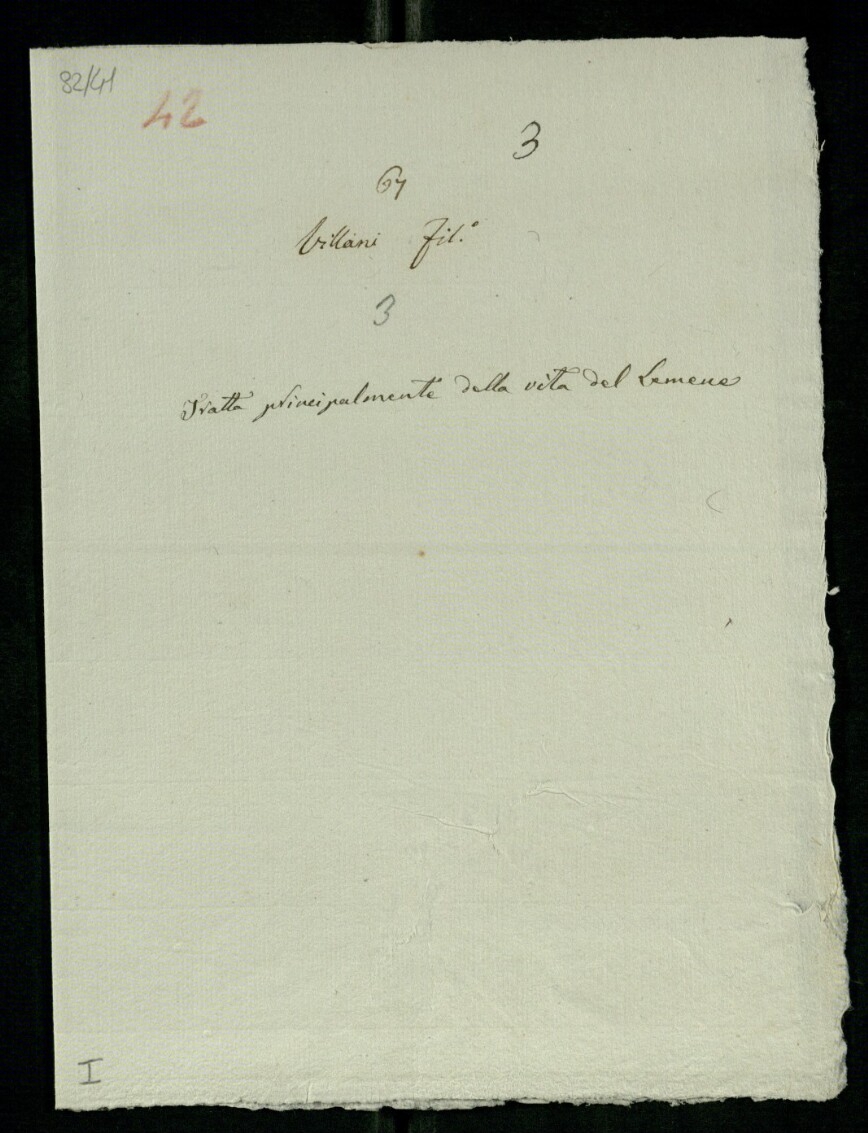 82/41
42
3
67
Villani Fil.º
3
Tratta principalmente della vita del Lemene
I